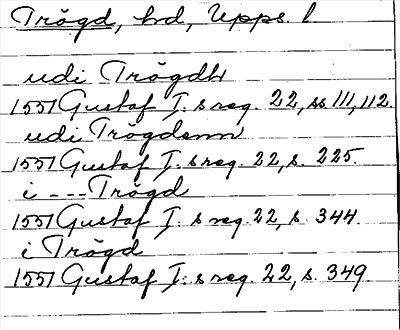 Trögd, hd, Upps. l
udi Trögdh
1551 Gustaf I:s reg. 22, ss 111, 112.
udi Trögdenn
1551 Gustaf I:s reg. 22, s. 225.
i --- Trögd
1551 Gustaf I:s reg. 22, s. 344.
i Trögd
1551 Gustaf I:s reg. 22, s. 349.